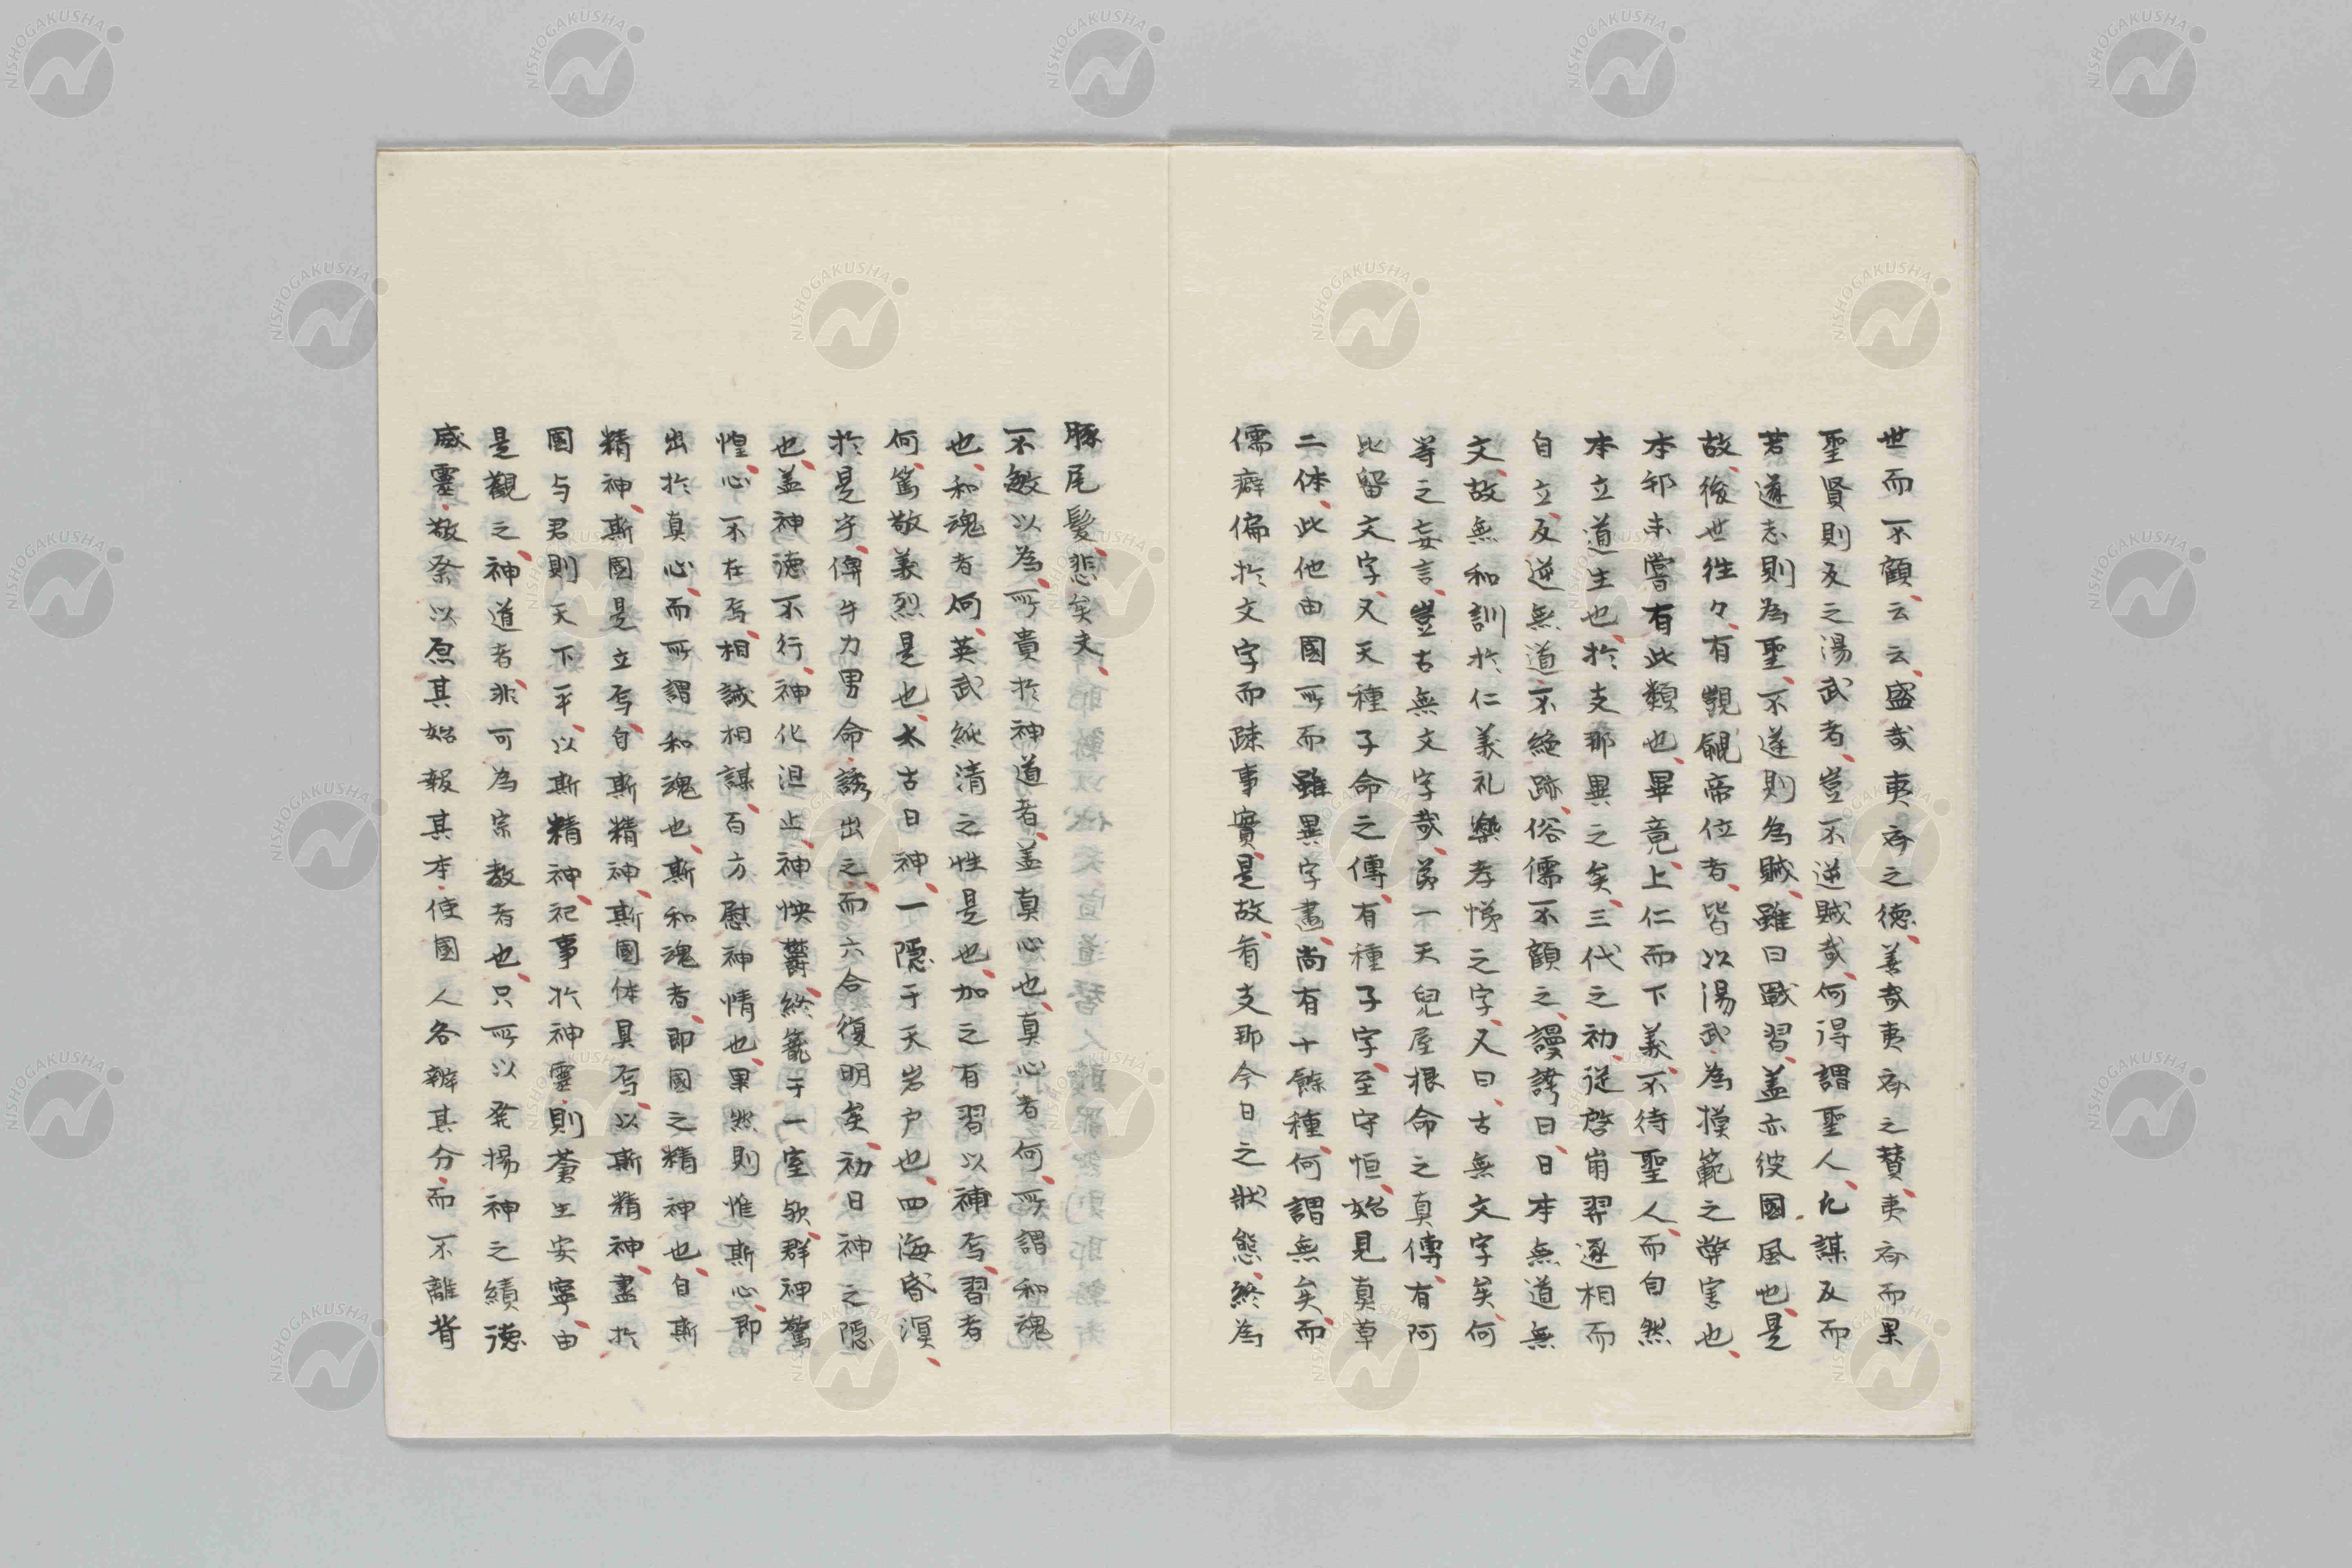 世而不顧云云盛哉夷齊之德善哉夷齊之賛夷齊而果
聖賢則反之湯武者豈不逆賊哉何得謂聖人凢謀反而
若遂志則為聖不遂則為賊雖曰戰習盖亦彼國風也是
故後世往々有覬覦帝位者皆以湯武為摸範之弊害也
本邦未嘗有此類也畢竟上仁而下義不待聖人而自然
本立道生也於支那異之矣三代之初従啓崩羿逐相而
自立反逆無道不絶跡俗儒不顧之謾誇曰日本無道無
文故無和訓於仁義礼樂孝悌之字又曰古無文字矣何
等之妄言豈古無文字哉第一天兒屋根命之真傳有阿
比留文字又天種子命之傳有種子字至守恒始見真草
二体此他由國所而雖異字畫尚有十餘種何謂無矣而
儒癖偏於文字而疎事實是故看支那今日之狀態終為
豚尾髮悲矣夫
不敏以為所貴於神道者盖真心也真心者何所謂和魂
也和魂者何英武純清之性是也加之有習以神焉習者
何篤敬義烈是也太古日神一隱于天岩戸也四海昏溟
於是乎傳手力男命誘出之而六合復明矣初日神之隱
也盖神德不行神化沮止神怏欝終籠于一室欤群神驚
惶心不在焉相誠相謀百方慰神情也果然則惟斯心即
出於真心而所謂和魂也斯和魂者即國之精神也自斯
精神斯國是立焉自斯精神斯國体具焉以斯精神盡於
國与君則天下平以斯精神祀事於神靈則蒼生安寧由
是觀之神道者非可為宗教者也只所以発揚神之績德
威靈敬祭以原其始報其本使國人各辨其分而不離背